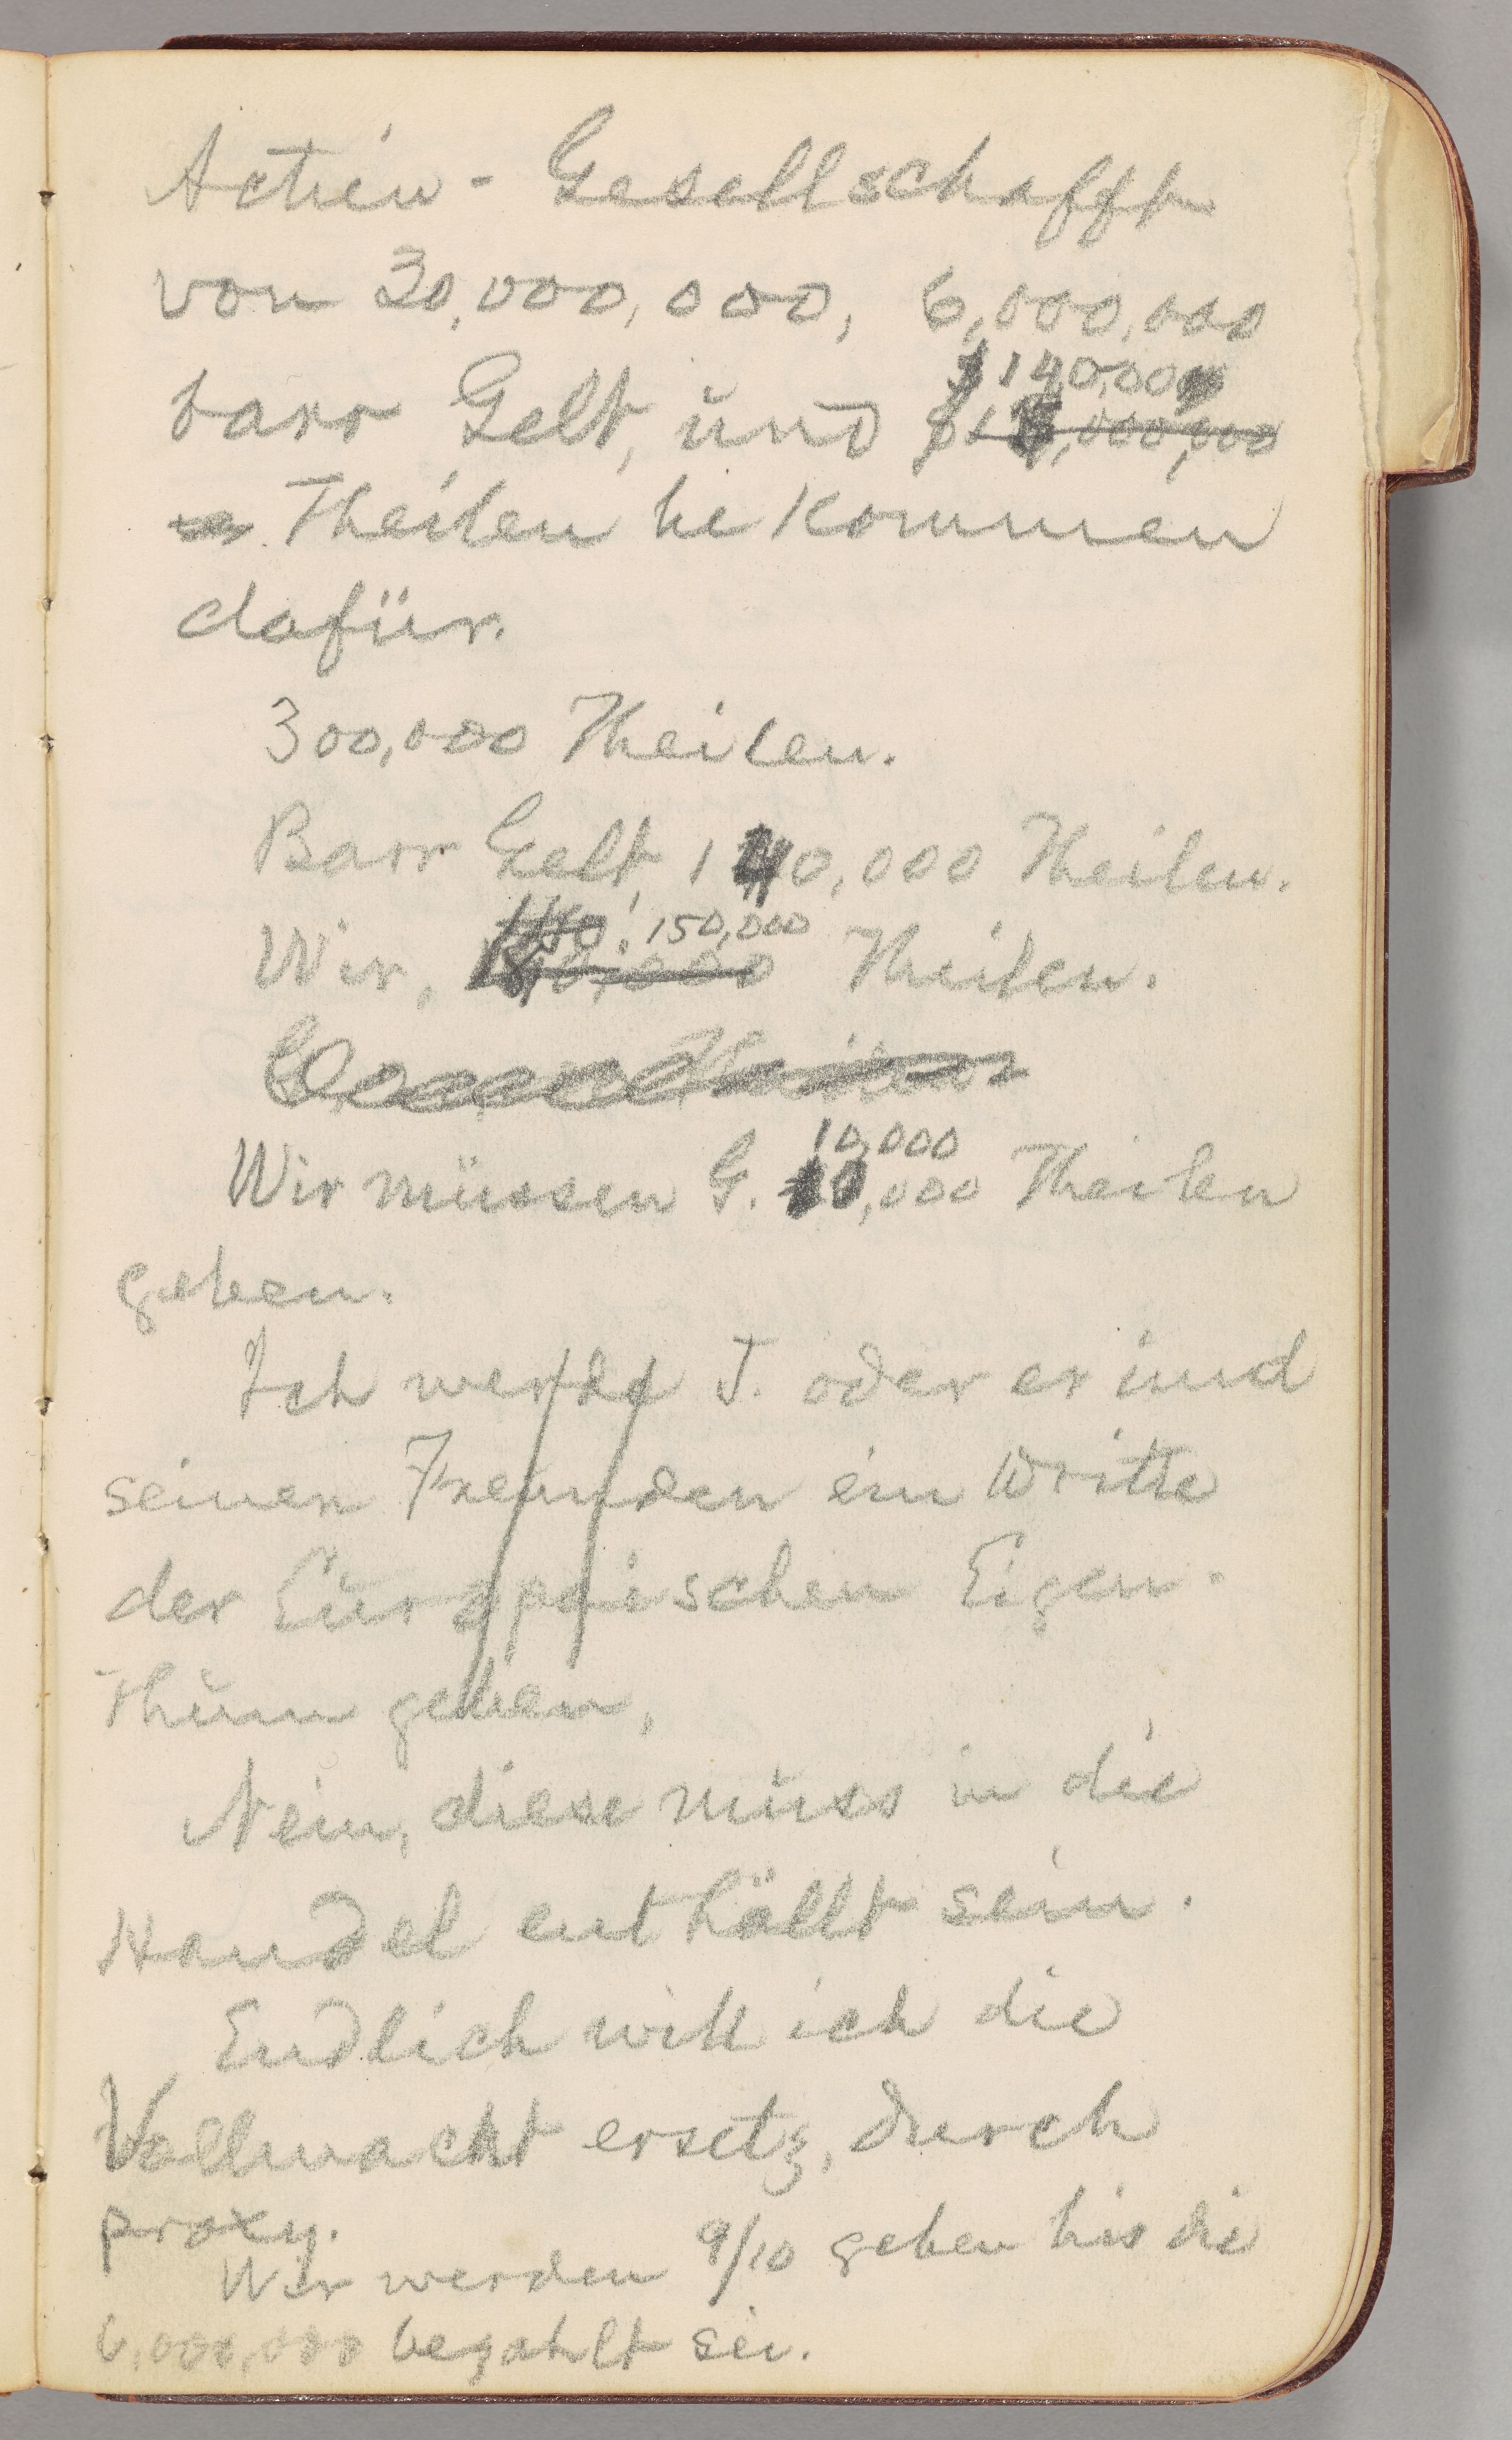 Actien - Gesellschafft
von 30,000,000, 6,000,000
$140,000
barr Gelt, und $1 ,000,000
Theilen bekommen
dafür.
300,000 Theilen.
Barr Gelt, 140,000 Theilen.
150,000
Wir, Theilen.
10,000
Wir müssen G. 10,000 Theilen
geben.
Ich werde J. oder er und
seinen Freunden ein Dritte
der Europäischen Eigen-
thum geben,
Nein, diese muss in die
Handel enthällt sein.
Endlich will ich die
Vollmacht ersetz, durch
proxy.
Wir werden 9/10 geben bis die
6,000,000 bezahlt sei.